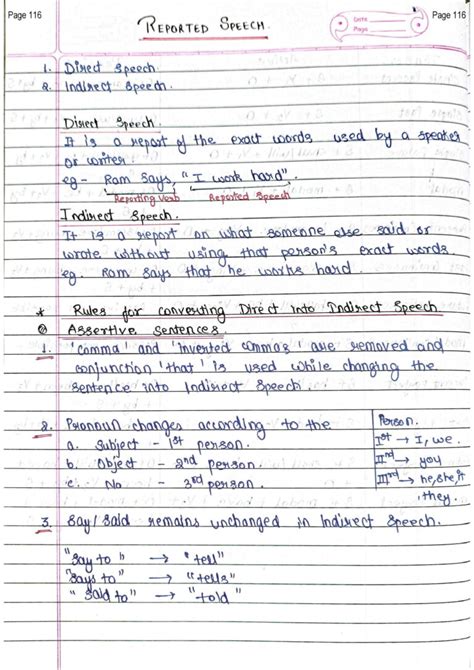 Page 116
REPORTED SPEECH.
Date
Page
Page 116
1. Direct Speech
2. Indirect Speech.
Direct Speech.
It is a report of the exact words used by a speaker
or writer.
eg - Ram says, "I work hard".
Reporting Verb Reported Speech
Indirect Speech.
It is a report on what someone else said or
wrote without using that person's exact words.
eg. Ram says that he works hard.
* Rules for converting Direct into Indirect Speech
Assertive Sentences.
1. 'comma' and 'inverted commas' are removed and
conjunction 'that' is used while changing the
sentence into Indirect Speech.
2. Pronoun changes according to the
a. Subject - 1st person.
b. Object - 2nd person.
c. No - 3rd person.
Person.
Ist → I, we.
IInd → you
IIIrd → he, she, it
they.
3. Say/Said remains unchanged in Indirect Speech.
"Say to" → "tell"
"Says to" → "tells"
"Said to" → "told"